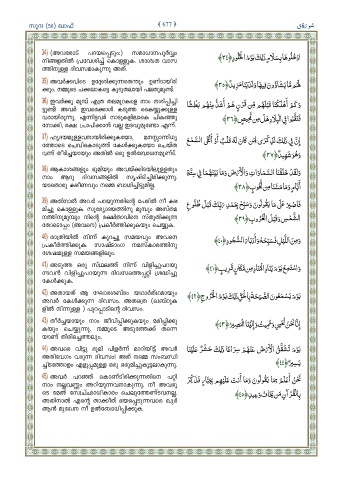 സൂറ (50) ഖാഫ്
﴾ 677 ﴿
سورة ق
34) (അവരോട് പറയപ്പെടും:) സമാധാനപൂർവ്വം
നിങ്ങളതിൽ പ്രവേശിച്ച് കൊള്ളുക. ശാശ്വത വാസ
ത്തിനുള്ള ദിവസമാകുന്നു അത്.
35) അവർക്കവിടെ ഉദ്ദേശിക്കുന്നതെന്തും ഉണ്ടായിരി
ക്കും. നമ്മുടെ പക്കലാകട്ടെ കൂടുതലായി പലതുമുണ്ട്.
36) ഇവർക്കു മുമ്പ് എത്ര തലമുറകളെ നാം നശിപ്പിച്ചി
ട്ടുണ്ട് അവർ ഇവരെക്കാൾ കടുത്ത കൈയ്യൂക്കുള്ള
വരായിരുന്നു. എന്നിട്ടവർ നാടുകളിലാകെ ചികഞ്ഞു
നോക്കി; രക്ഷ പ്രാപിക്കാൻ വല്ല ഇടവുമുണ്ടോ എന്ന്.
37) ഹൃദയമുള്ളവനായിരിക്കുകയോ, മനസ്സാന്നിധ്യ
ത്തോടെ ചെവികൊടുത്ത് കേൾക്കുകയോ ചെയ്ത
വന് തീർച്ചയായും അതിൽ ഒരു ഉൽബോധനമുണ്ട്.
38) ആകാശങ്ങളും ഭൂമിയും അവയ്ക്കിടയിലുള്ളതും
നാം ആറു ദിവസങ്ങളിൽ സൃഷ്ടിച്ചിരിക്കുന്നു.
യാതൊരു ക്ഷീണവും നമ്മെ ബാധിച്ചിട്ടുമില്ല.
39) അതിനാൽ അവർ പറയുന്നതിന്റെ പേരിൽ നീ ക്ഷ
മിച്ചു കൊള്ളുക. സൂര്യോദയത്തിനു മുമ്പും അസ്തമ
നത്തിനുമുമ്പും നിന്റെ രക്ഷിതാവിനെ സ്തുതിക്കുന്ന
തോടൊപ്പം (അവനെ) പ്രകീർത്തിക്കുകയും ചെയ്യുക.
40) രാത്രിയിൽ നിന്ന് കുറച്ചു സമയവും അവനെ
പ്രകീർത്തിക്കുക. സാഷ്ടാംഗ നമസ്കാരത്തിനു
ശേഷമുള്ള സമയങ്ങളിലും.
41) അടുത്ത ഒരു സ്ഥലത്ത് നിന്ന് വിളിച്ചുപറയു
ന്നവൻ വിളിച്ചുപറയുന്ന ദിവസത്തെപ്പറ്റി ശ്രദ്ധിച്ചു
കേൾക്കുക.
42) അതായത് ആ ഘോരശബ്ദം യഥാർത്ഥമായും
അവർ കേൾക്കുന്ന ദിവസം. അതത്രെ (ഖബ്റുക
ളിൽ നിന്നുള്ള ) പുറപ്പാടിന്റെ ദിവസം.
43) തീർച്ചയായും നാം ജീവിപ്പിക്കുകയും മരിപ്പിക്കു
കയും ചെയ്യുന്നു. നമ്മുടെ അടുത്തേക്ക് തന്നെ
യാണ് തിരിച്ചെത്തലും.
44) അവരെ വിട്ടു ഭൂമി പിളർന്ന് മാറിയിട്ട് അവർ
അതിവേഗം വരുന്ന ദിവസം! അത് നമ്മെ സംബന്ധി
ച്ചിടത്തോളം എളുപ്പമുള്ള ഒരു ഒരുമിച്ചുകൂട്ടലാകുന്നു.
45) അവർ പറഞ്ഞ് കൊണ്ടിരിക്കുന്നതിനെ പറ്റി
നാം നല്ലവണ്ണം അറിയുന്നവനാകുന്നു. നീ അവരു
ടെ മേൽ സ്വേച്ഛാധികാരം ചെലുത്തേണ്ടവനല്ല.
അതിനാൽ എന്റെ താക്കീത് ഭയപ്പെടുന്നവരെ ഖുർ
ആൻ മുഖേന നീ ഉൽബോധിപ്പിക്കുക.
ادْخُلُوهَا بِسَلَامٍ ذَٰلِكَ يَوْمُ الْخُلُودِ ﴿٣٤﴾
لَهُم مَّا يَشَاءُونَ فِيهَا وَلَدَيْنَا مَزِيدٌ ﴿٣٥﴾
وَكَمْ أَهْلَكْنَا قَبْلَهُم مِّن قَرْنٍ هُمْ أَشَدُّ مِنْهُم بَطْشًا
فَنَقَّبُوا فِي الْبِلَادِ هَلْ مِن مَّحِيصٍ ﴿٣٦﴾
إِنَّ فِي ذَٰلِكَ لَذِكْرَىٰ لِمَن كَانَ لَهُ قَلْبٌ أَوْ أَلْقَى السَّمْعَ
وَهُوَ شَهِيدٌ ﴿٣٧﴾
وَلَقَدْ خَلَقْنَا السَّمَاوَاتِ وَالْأَرْضَ وَمَا بَيْنَهُمَا فِي سِتَّةِ
أَيَّامٍ وَمَا مَسَّنَا مِن لُّغُوبٍ ﴿٣٨﴾
فَاصْبِرْ عَلَىٰ مَا يَقُولُونَ وَسَبِّحْ بِحَمْدِ رَبِّكَ قَبْلَ طُلُوعِ
الشَّمْسِ وَقَبْلَ الْغُرُوبِ ﴿٣٩﴾
وَمِنَ اللَّيْلِ فَسَبِّحْهُ وَأَدْبَارَ السُّجُودِ ﴿٤٠﴾
وَاسْتَمِعْ يَوْمَ يُنَادِ الْمُنَادِ مِن مَّكَانٍ قَرِيبٍ ﴿٤١﴾
يَوْمَ يَسْمَعُونَ الصَّيْحَةَ بِالْحَقِّ ذَٰلِكَ يَوْمُ الْخُرُوجِ ﴿٤٢﴾
إِنَّا نَحْنُ نُحْيِي وَنُمِيتُ وَإِلَيْنَا الْمَصِيرُ ﴿٤٣﴾
يَوْمَ تَشَقَّقُ الْأَرْضُ عَنْهُمْ سِرَاعًا ذَٰلِكَ حَشْرٌ عَلَيْنَا
يَسِيرٌ ﴿٤٤﴾
نَّحْنُ أَعْلَمُ بِمَا يَقُولُونَ وَمَا أَنتَ عَلَيْهِم بِجَبَّارٍ فَذَكِّرْ
بِالْقُرْآنِ مَن يَخَافُ وَعِيدِ ﴿٤٥﴾